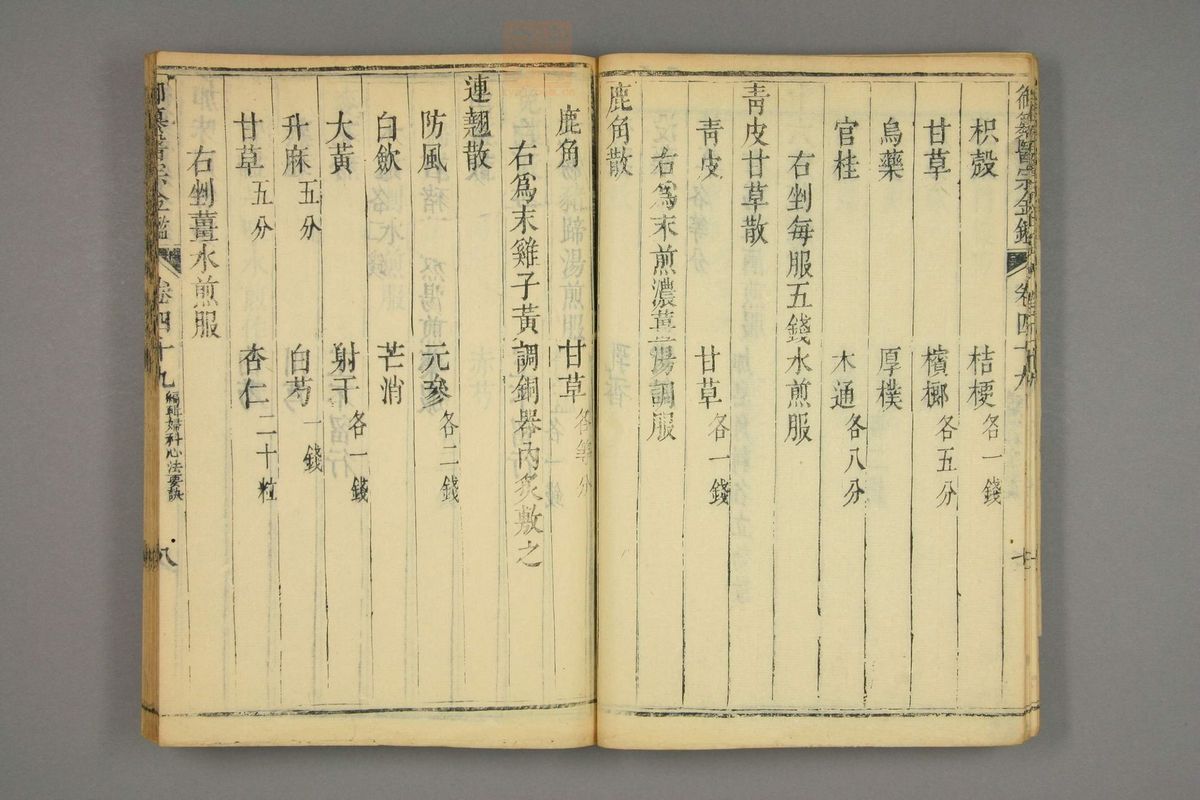 御纂醫宗金鑑 卷四十九 七
枳殼 桔梗各一錢
甘草 檳榔各五分
烏藥 厚樸
官桂 木通各八分
右剉每服五錢水煎服
青皮甘草散
青皮 甘草各一錢
右為末煎濃薑湯調服
鹿角散
鹿角 甘草各等分
右為末雞子黃調銅器內炙敷之
連翹散
防風 元參各二錢
白歛 芒消
大黃 射干各一錢
升麻五分 白芍一錢
甘草五分 杏仁二十粒
右剉薑水煎服
御纂醫宗金鑑 卷四十九 編輯婦科心法要訣 八